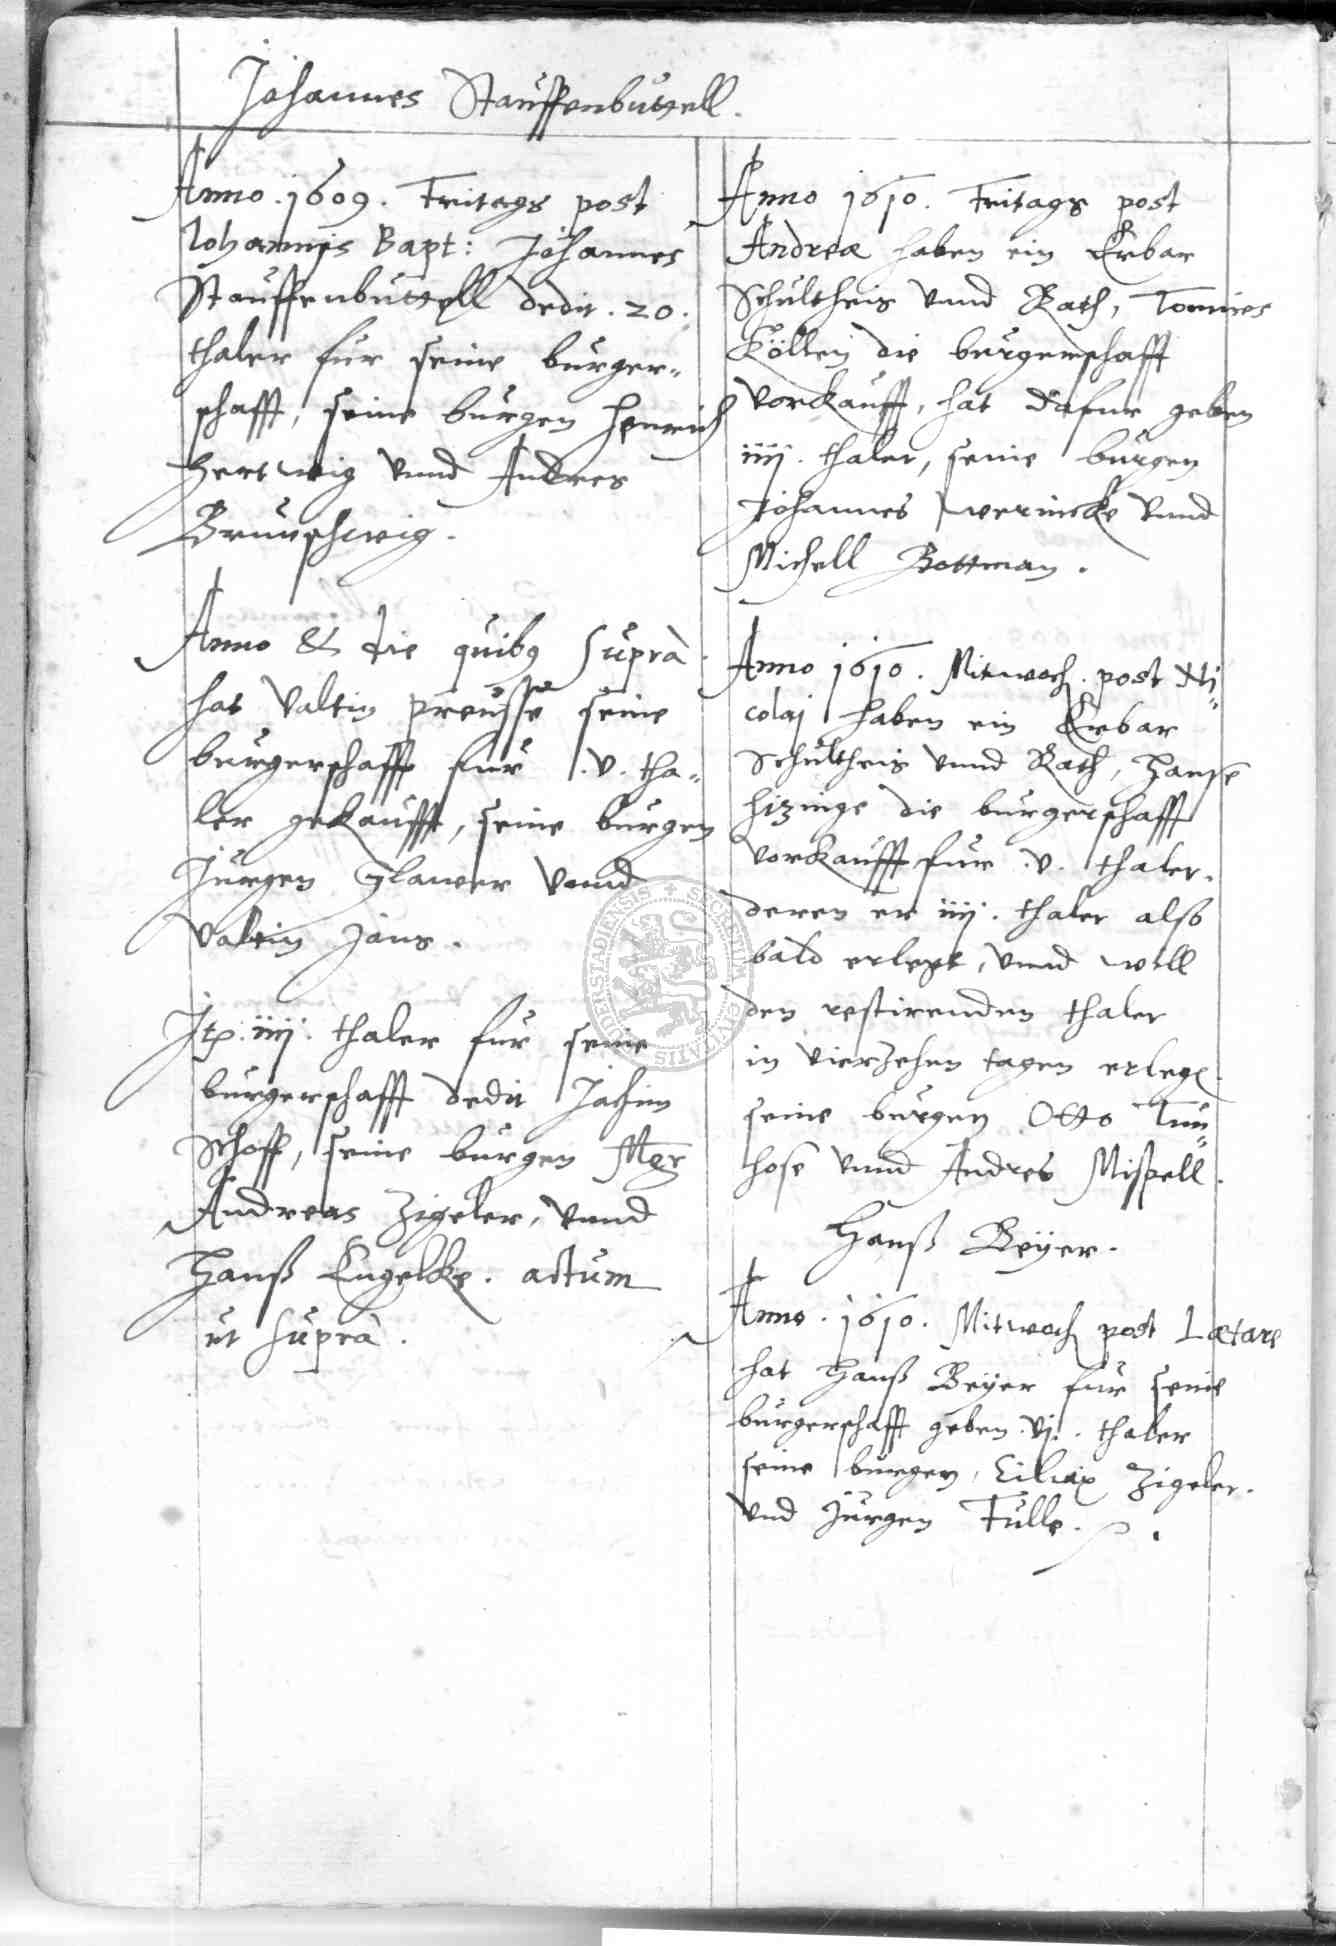 Johannes Stauffenbuttell.
Anno. 1609. Fritags post
Johannis Bapt: Johannes
Stauffenbuttell dedit. 20.
thaler fur seine burger=
schafft, seine burgen Henrich
Hertwig vnnd Andres
Brunschwig.
Anno & die quibus supra.
hat Valtin Preusse seine
burgerschafft fur .v. tha=
ler gekaufft, seine burgen
Jurgen Glawer vnnd
Valtin Jans.
Jtem. iiij. thaler fur seine
burgerschafft dedit Jochim
Schoff, seine burgen Mgr
Andreas Zigeler, vnnd
Hanß Engelcke. actum
ut supra.
Anno 1610. Fritags post
Andreæ haben ein Erbar
Schultheis vnnd Rath, Tonnies
Köllen die burgerschafft
vorkaufft, hat dafur geben
iiij. thaler, seine burgen
Johannes Wernicke vnnd
Michell Bottman.
Anno 1610. Mitwoch. post Ni=
colaj haben ein Erbar
Schultheis vnnd Rath, Hanse
Hizinge die burgerschafft
vorkaufft fur .v. thaler.
deren er iiij. thaler also
bald erlegt, vnnd will
den restirenden thaler
in vierzehen tagen erlegen.
seine burgen Otto Tun=
hose vnnd Andres Mispell.
Hanß Beÿer.
Anno. 1610. Mitwoch post Lætare
hat Hanß Beÿer fur seine
burgerschafft geben .vj. thaler
seine burgen, Ciliax Zigeler.
vnd Jurgen Tulle.
SECRETUM CIVITATIS DUDERSTADIENSIS